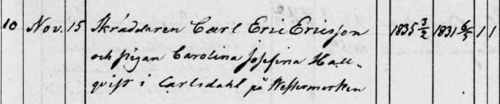 10 Nov. 15 Skräddaren Carl Eric Ericsson 1835 3/2 1831 6/5 1 1
och pigan Carolina Josefina Hall-
qvist i Carlsdahl på Westermarken